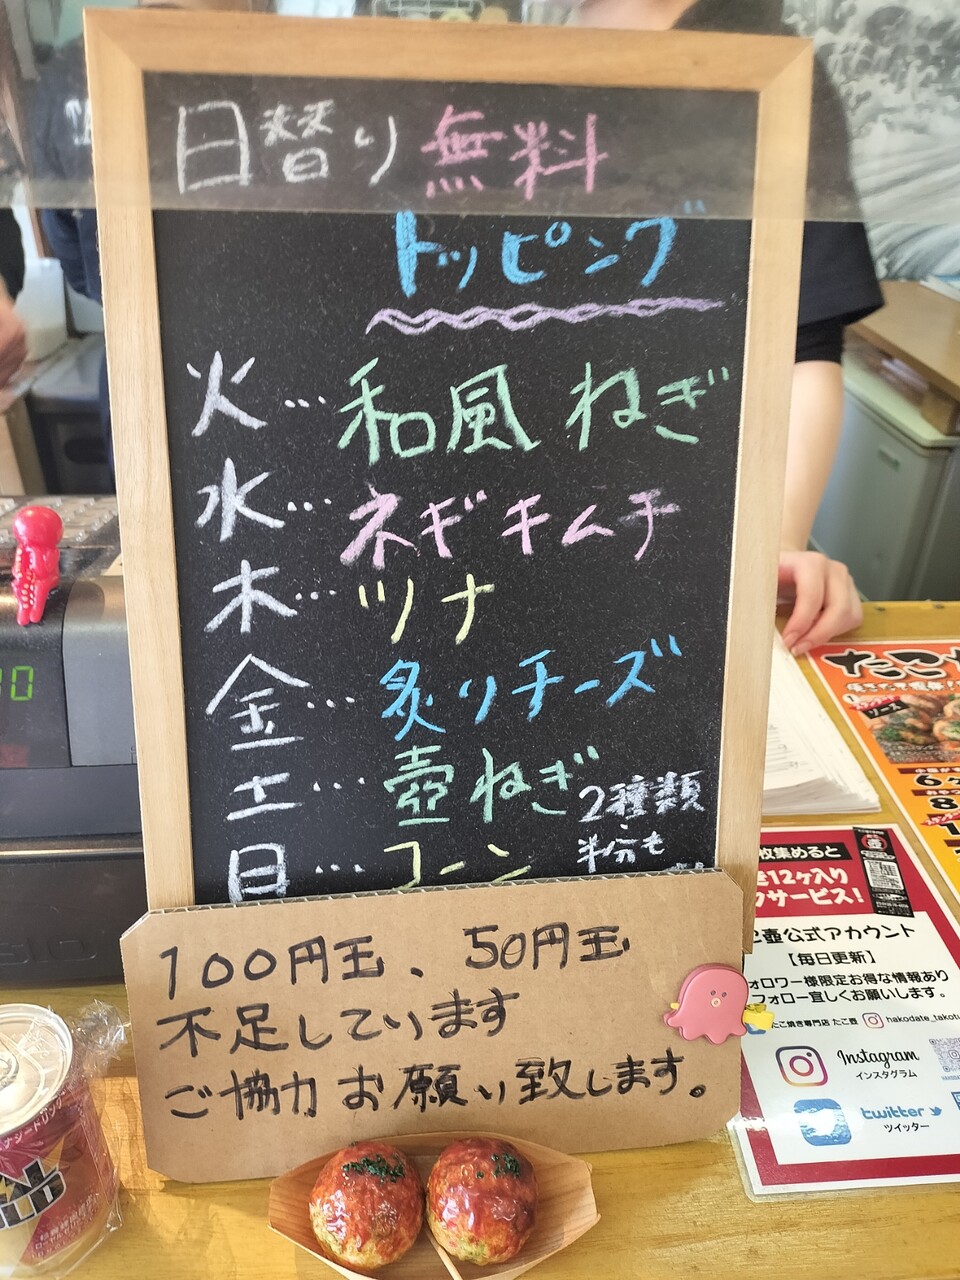 日替り無料
トッピング
火…和風ねぎ
水…ネギキムチ
木…ツナ
金…炙りチーズ
土…壺ねぎ
日…コーン
2種類
半分も
100円玉、50円玉
不足しています
ご協力お願い致します。
たこ
ソース
枚集めると
12ヶ入り
サービス!
壺公式アカウント
【毎日更新】
ォロワー様限定お得な情報あり
フォロー宜しくお願いします。
たこ焼き専門店 たこ壺
hakodate_takot
Instagram
インスタグラム
twitter
ツイッター